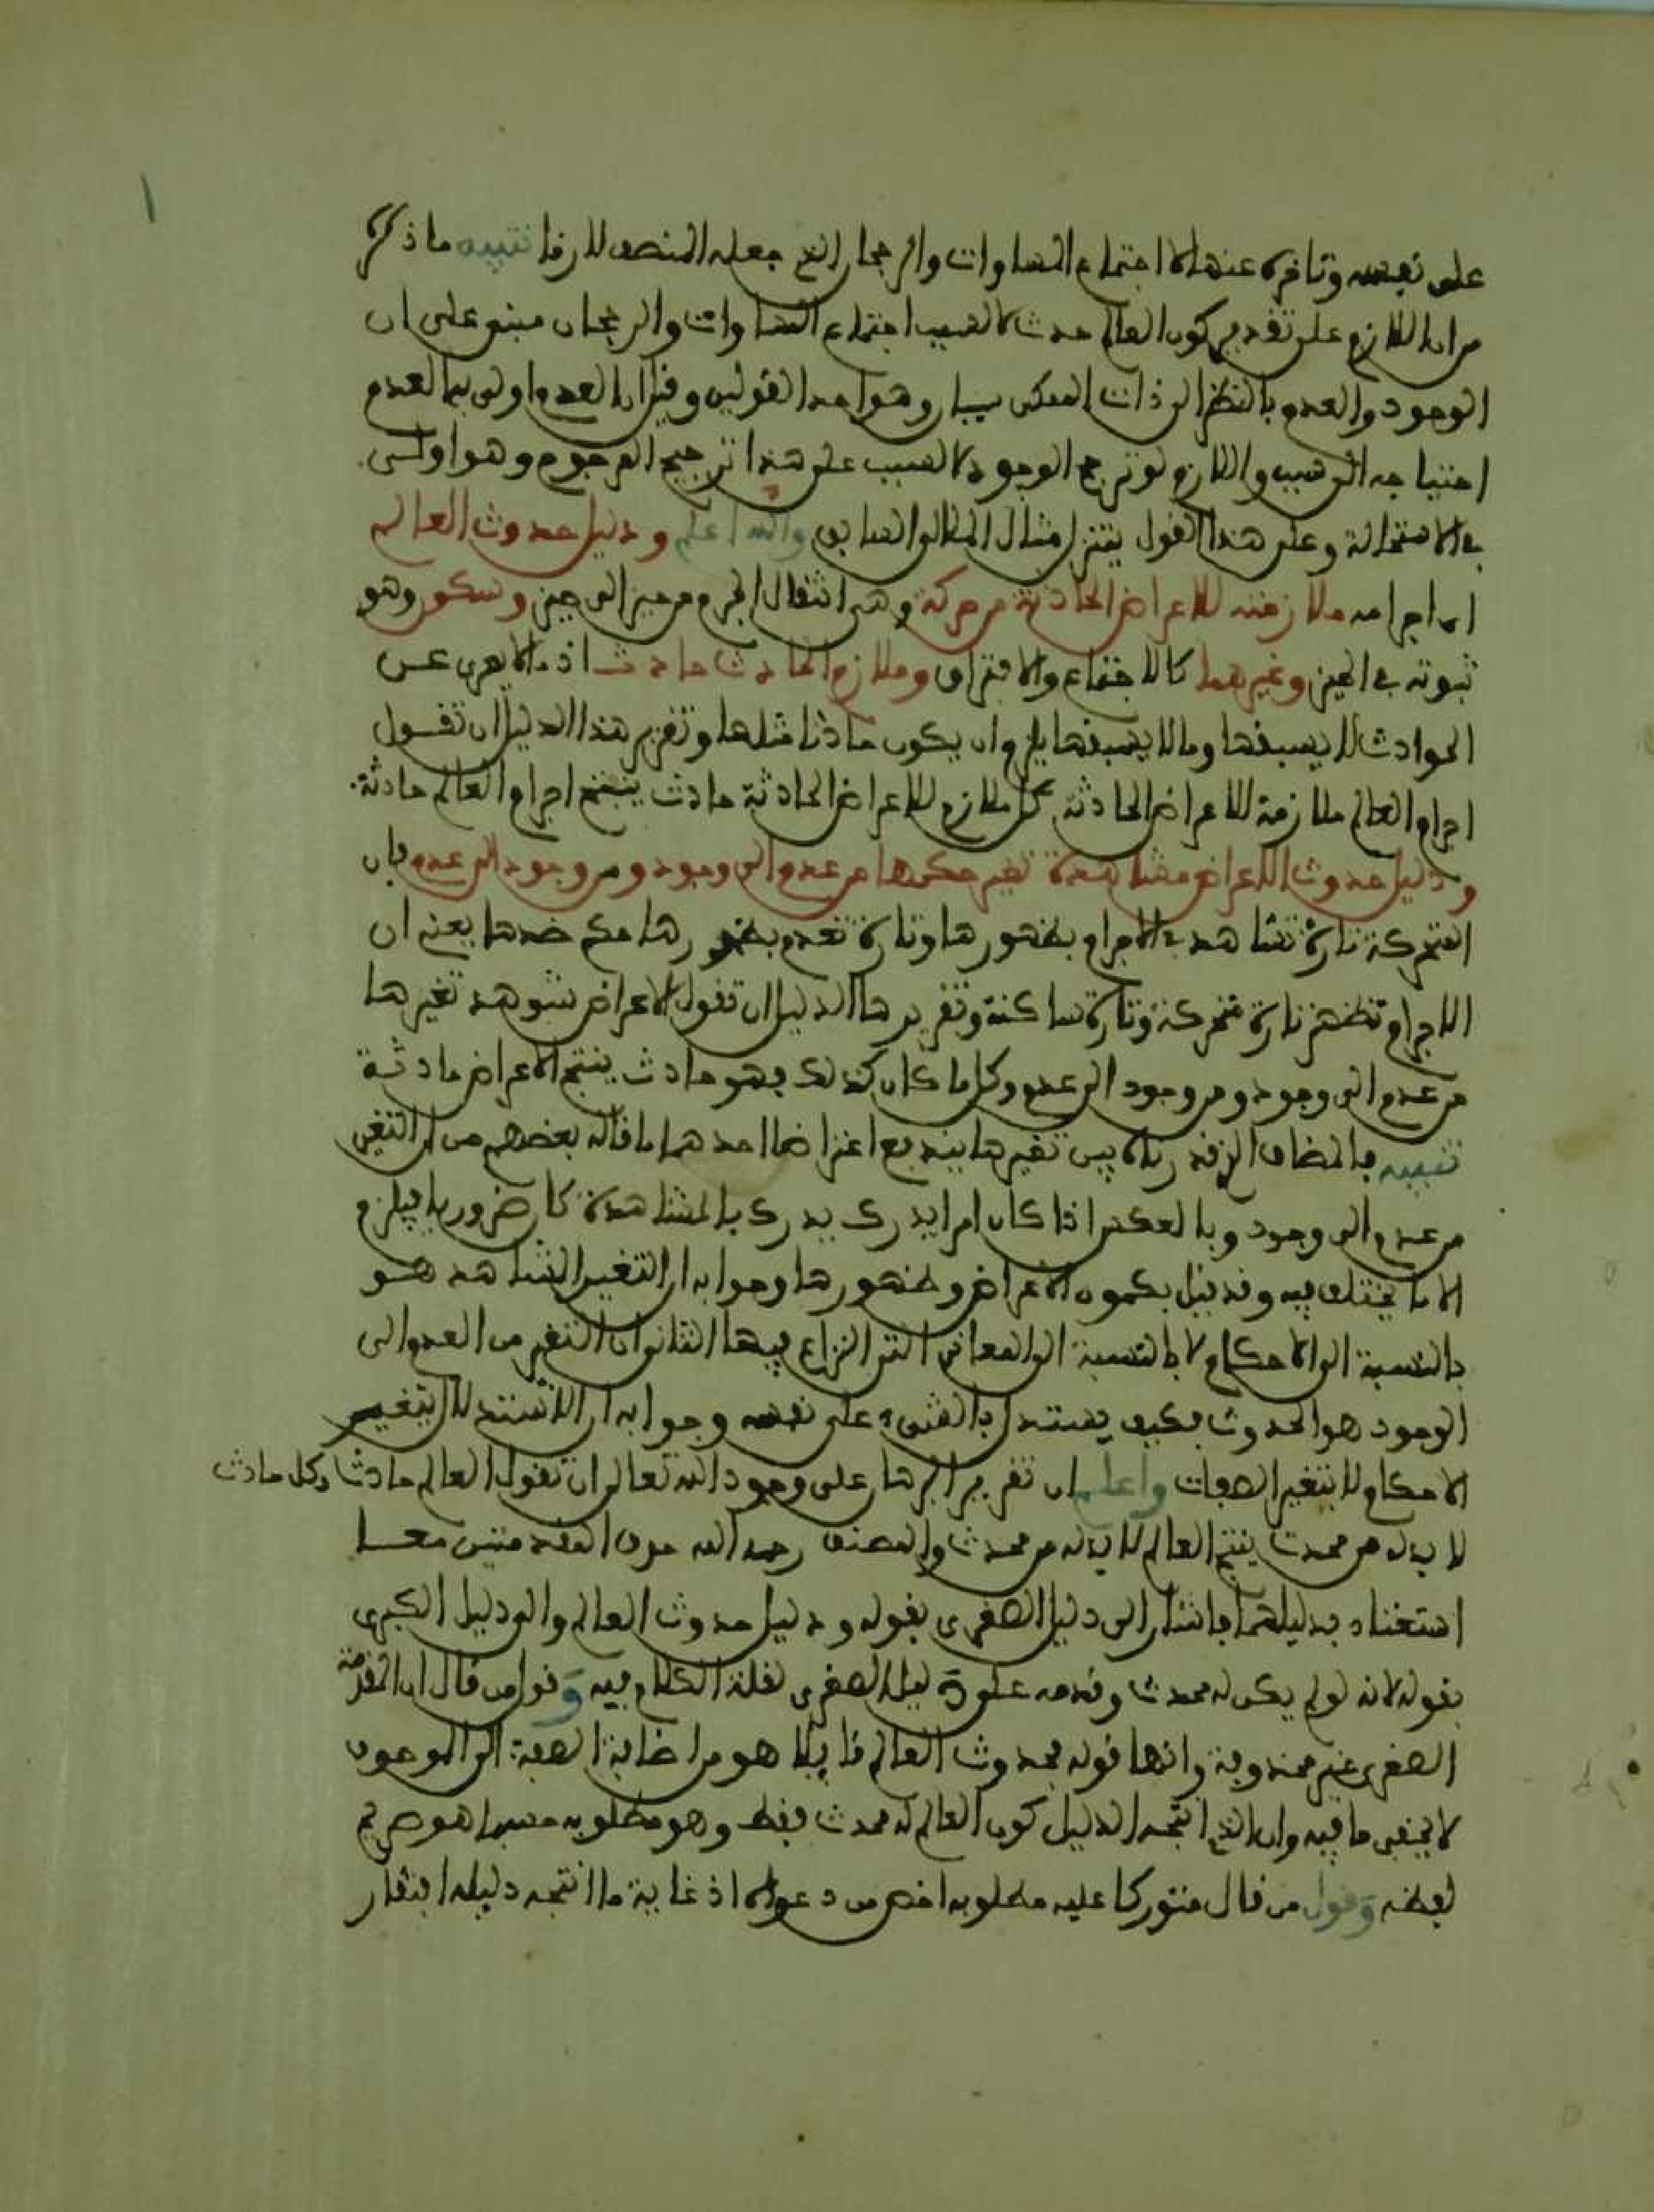 على نفسه وتأخره عنها لا اجتماع المساوات والرجحان الذي جعله المنصف لازما تنبيه ما ذكره
من ان اللازم على تقدير كون العالم حدث لا لسبب اجتماع المساوات والرجحان مبني على ان
الوجود والعدم بالنظر الى ذات الممكن سيان وهو احد القولين وقيل ان العدم اولى به لعدم
احتياجه الى سبب واللازم لو ترجح الوجود لا لسبب على هذا ترجيح المرجوح وهو اولى
في الاستحالة وعلى هذا القول يتنزل مثال المطالع السابق والله اعلم ودليل حدوث العالم
اي اجرامه ملازمته للاعراض الحادثة من حركة وهي انتقال الجرم من حيز الى حيز وسكون وهو
ثبوته في الحيز وغيرهما كالاجتماع والافتراق وملازم الحادث حادث اذ ما لا يعرى عن
الحوادث لا يسبقها وما لا يسبقها يلزم ان يكون حادثا مثلها وتقرير هذا الدليل ان تقول
اجرام العالم ملازمة للاعراض الحادثة وكل ملازم للاعراض الحادثة حادث ينتج اجرام العالم حادثة
ودليل حدوث الاعراض مشاهدة تغير حكمها من عدم الى وجود ومن وجود الى عدم فان
المتحركة تارة تشاهد في الاجرام بظهورها وتارة تعدم بظهورها حكم ضدها يعني ان
الاجرام تظهر تارة متحركة وتارة ساكنة وتقرير هذا الدليل ان تقول الاعراض شوهد تغيرها
من عدم الى وجود ومن وجود الى عدم وكل ما كان كذلك فهو حادث ينتج الاعراض حادثة
تنبيه بالمضاف الذي قدرناه بين تغيرها يندفع اعتراضان احدهما ما قاله بعضهم من ان التغير
من عدم الى وجود وبالعكس اذا كان امرا يدرك يدرك بالمشاهدة كان ضروريا فيلزم
الا ما يختلف فيه وقد قيل بكمون الاعراض وظهورها وجوابه ان التغير المشاهد هو
بالنسبة الى الاحكام لا بالنسبة الى المعاني التي النزاع فيها الثاني ان التغير من العدم الى
الوجود هو الحدوث فكيف يستدل بالشيء على نفسه وجوابه ان الاستدلال بتغير
الاحكام لا بتغير الصفات واعلم ان تقرير البرهان على وجود الله تعالى ان تقول العالم حادث وكل حادث
لا بد له من محدث ينتج العالم لا بد له من محدث والمصنف رحمه الله حذف المقدمتين معا
استغناء بدليلهما فاشار الى دليل الصغرى بقوله ودليل حدوث العالم والى دليل الكبرى
بقوله لانه لو لم يكن له محدث وقدمه على دليل الصغرى لقلة الكلام فيه وقول من قال ان المقدمة
الصغرى غير محذوفة وانها قوله بحدوث العالم قايلا هو من اضافة الصفة الى الموصوف
لا يخفى ما فيه وان الذي انتجه الدليل كون العالم له محدث فقط وهو مطلوبه حسبما هو صريح
لفظه وقول من قال متوركا عليه مطلوبه اخص من دعواه اذ غاية ما انتجه دليله افتقار